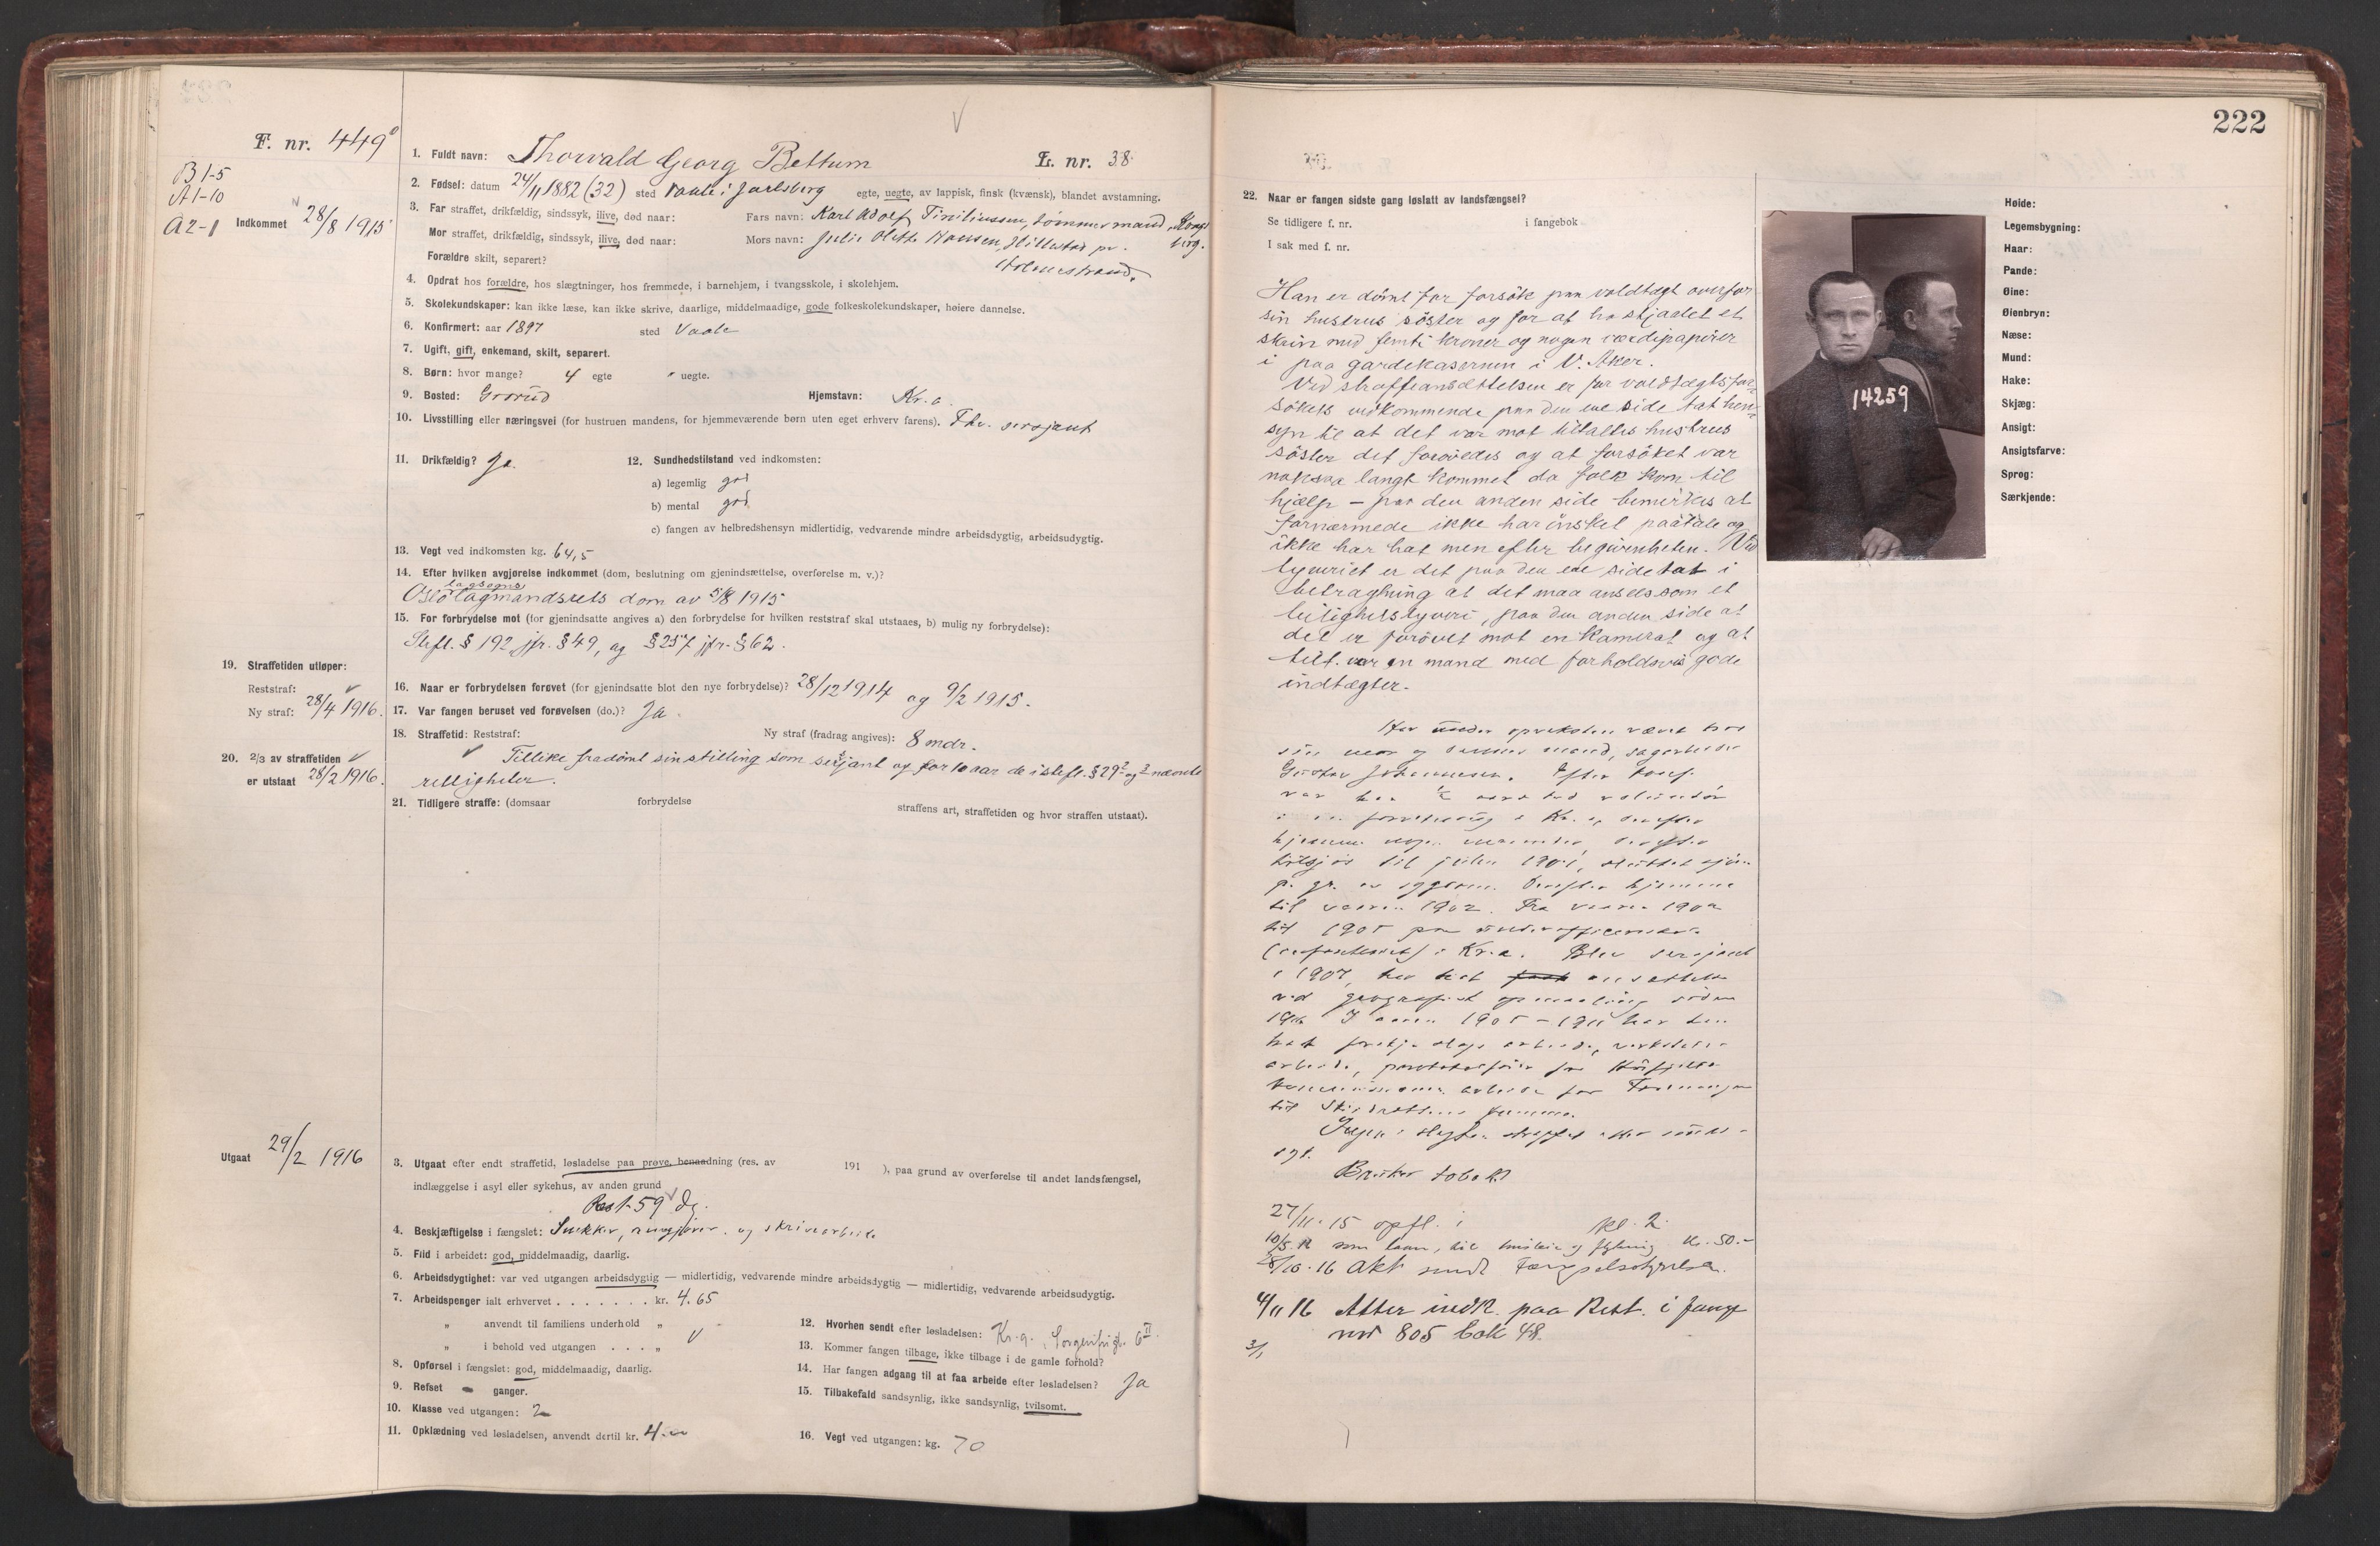 F. nr. 449
B 1-5
A 1-10
A 2-1
Indkommet 28/8 1915
1. Fuldt navn: Thorvald Georg Bettum L. nr. 38
2. Fødsel: datum 24/11 1882 (32) sted Vaale i Jarlsberg egte, uegte, av lappisk, finsk (kvænsk), blandet avstamning.
3. Far straffet, drikfældig, sindssyk, ilive, død naar: Fars navn: Karl Adolf tømmermand, Kongsberg.
Mor straffet, drikfældig, sindssyk, ilive, død naar: Mors navn: Julie Olette Hansen, pr. Holmestrand.
Forældre skilt, separert?
4. Opdrat hos forældre, hos slægtninger, hos fremmede, i barnehjem, i tvangsskole, i skolehjem.
5. Skolekundskaper: kan ikke læse, kan ikke skrive, daarlige, middelmaadige, gode folkeskolekundskaper, høiere dannelse.
6. Konfirmert: aar 1897 sted Vaale
7. Ugift, gift, enkemand, skilt, separert.
8. Børn: hvor mange? 4 egte " uegte.
9. Bosted: Grorud Hjemstavn: Kr.a.
10. Livsstilling eller næringsvei (for hustruen mandens, for hjemmeværende børn uten eget erhverv farens). Fhv. sersjant
11. Drikfældig? Ja. 12. Sundhedstilstand ved indkomsten:
a) legemlig god
b) mental god
c) fangen av helbredshensyn midlertidig, vedvarende mindre arbeidsdygtig, arbeidsudygtig.
13. Vegt ved indkomsten kg. 64,5
14. Efter hvilken avgjørelse indkommet (dom, beslutning om gjenindsættelse, overførelse m. v.)?
Oslo lagsogns lagmandsrets dom av 5/8 1915
15. For forbrydelse mot (for gjenindsatte angives a) den forbrydelse for hvilken reststraf skal utstaaes, b) mulig ny forbrydelse):
Strfl. § 192 jfr. § 49, og § 257 jfr. § 62.
19. Straffetiden utløper:
Reststraf:
Ny straf: 28/4 1916.
16. Naar er forbrydelsen forøvet (for gjenindsatte blot den nye forbrydelse)? 28/12 1914 og 9/2 1915.
17. Var fangen beruset ved forøvelsen (do.)? Ja.
18. Straffetid: Reststraf: Ny straf (fradrag angives): 8 mdr.
20. 2/3 av straffetiden
er utstaat 28/2 1916.
Tillike fradømt sin stilling som sersjant og for 10 aar de i strfl. § 29 2 og 3 nævnte
rettigheter.
21. Tidligere straffe: (domsaar forbrydelse straffens art, straffetiden og hvor straffen utstaat).
Utgaat 29/2 1916
3. Utgaat efter endt straffetid, løsladelse paa prøve, benaadning (res. av 191 ), paa grund av overførelse til andet landsfængsel,
indlæggelse i asyl eller sykehus, av anden grund
Rest 59 dg.
4. Beskjæftigelse i fængslet: Snekker, og skrivearbeide
5. Flid i arbeidet: god, middelmaadig, daarlig.
6. Arbeidsdygtighet: var ved utgangen arbeidsdygtig — midlertidig, vedvarende mindre arbeidsdygtig — midlertidig, vedvarende arbeidsudygtig.
7. Arbeidspenger ialt erhvervet . . . . . . . kr. 4.65
" anvendt til familiens underhold " -
" i behold ved utgangen . . . . "
8. Opførsel i fængslet: god, middelmaadig, daarlig.
9. Refset - ganger.
10. Klasse ved utgangen: 2
11. Opklædning ved løsladelsen, anvendt dertil kr. 4.
12. Hvorhen sendt efter løsladelsen: Kr.a., Sorgenfrigt. 6 II.
13. Kommer fangen tilbage, ikke tilbage i de gamle forhold?
14. Har fangen adgang til at faa arbeide efter løsladelsen? Ja
15. Tilbakefald sandsynlig, ikke sandsynlig, tvilsomt.
16. Vegt ved utgangen: kg. 70
222
22. Naar er fangen sidste gang løslatt av landsfængsel?
Se tidligere f. nr. i fangebok
I sak med f. nr.
Han er dømt for forsøk paa voldtægt overfor
sin hustrus søster og for at ha stjaalet et
skrin med femti kroner og nogen værdipapirer
i paa gardekasernen i V. Aker.
Ved straffeansættelsen er for voldtægtsfor-
søkets vedkommende paa den ene side tat hen-
syn til at det var mot tiltaltes hustrus
søster det forøvedes og at forsøket var
noksaa langt kommet da folk kom til
hjælp — paa den anden side bemerkes at
fornærmede ikke har ønsket paatale og
ikke har hat men efter begivenheten. Ved
tyveriet er det paa den ene side tat i
betragtning at det maa ansees som et
leilighetstyveri, paa den anden side at
det er forøvet mot en kamerat og at
tilt. var en mand med forholdsvis gode
indtægter.
Har under opveksten været hos
sin mor og dennes mand,
Gustav Johannesen. Efter konf.
var han 1/2 aars tid
i en forretning i Kr.a, derefter
hjemme nogen maaneder, derefter
tilsjøs til julen 1901, sluttet sjøen
p. gr. av sygdom. Derefter hjemme
til vaaren 1902. Fra vaaren 1902
til 1905 paa underofficersskole
i Kr.a. Blev sersjant
i 1907, har hat ansættelse
ved geografisk opmaaling siden
I aarene 1905 - 1911 har han
hat arbeide,
arbeide, for
arbeide for Foreningen
til Ski-idrættens fremme.
Ingen i slegten straffet eller sinds-
sygt.
Bruker tobak
27/11. 15 opfl. i kl. 2.
som laan, til og kr. 50.-
16 Akt sendt Fængselsstyrelsen.
4/11 16 Atter indk. paa Rest. i fange
nr 805 bok 48.
2/1
14259
Høide:
Legemsbygning:
Haar:
Pande:
Øine:
Øienbryn:
Næse:
Mund:
Hake:
Skjæg:
Ansigt:
Ansigtsfarve:
Sprog:
Særkjende: